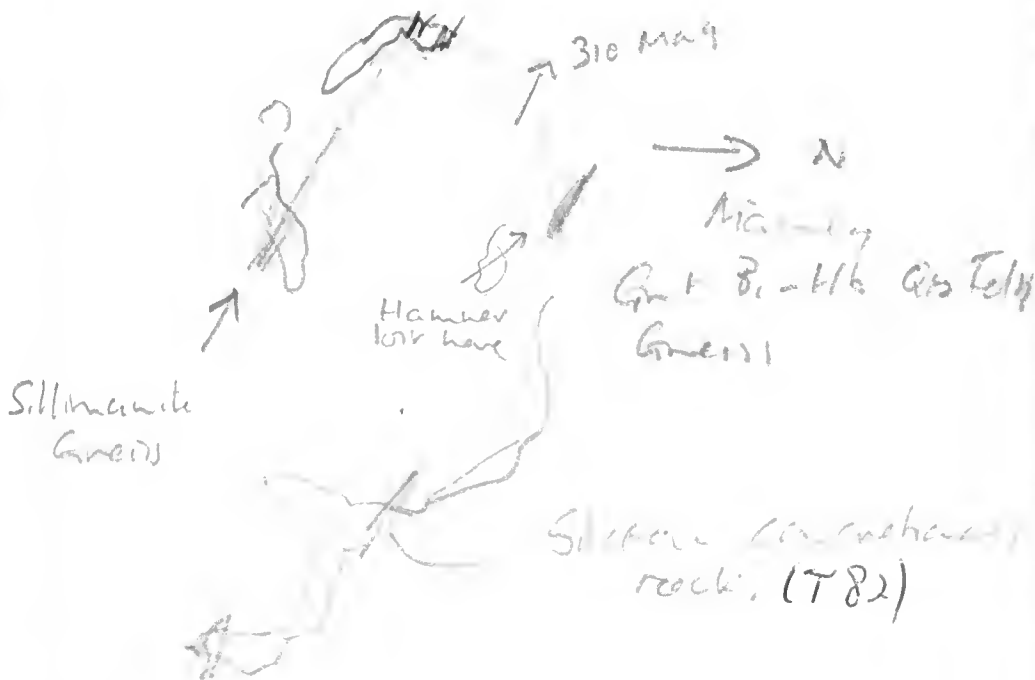 310 Mag
N
Hammer
lost here
Gnt Bi-Hb Qtz Felds
Gneiss
Sillimanite
Gneiss
rock. (T82)